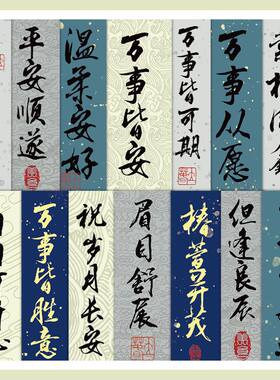 平安順遂
温柔安好
万事皆安
万事皆可期
万事从愿
万事皆胜意
祝岁月长安
眉目舒展
椿萱并茂
但逢良辰